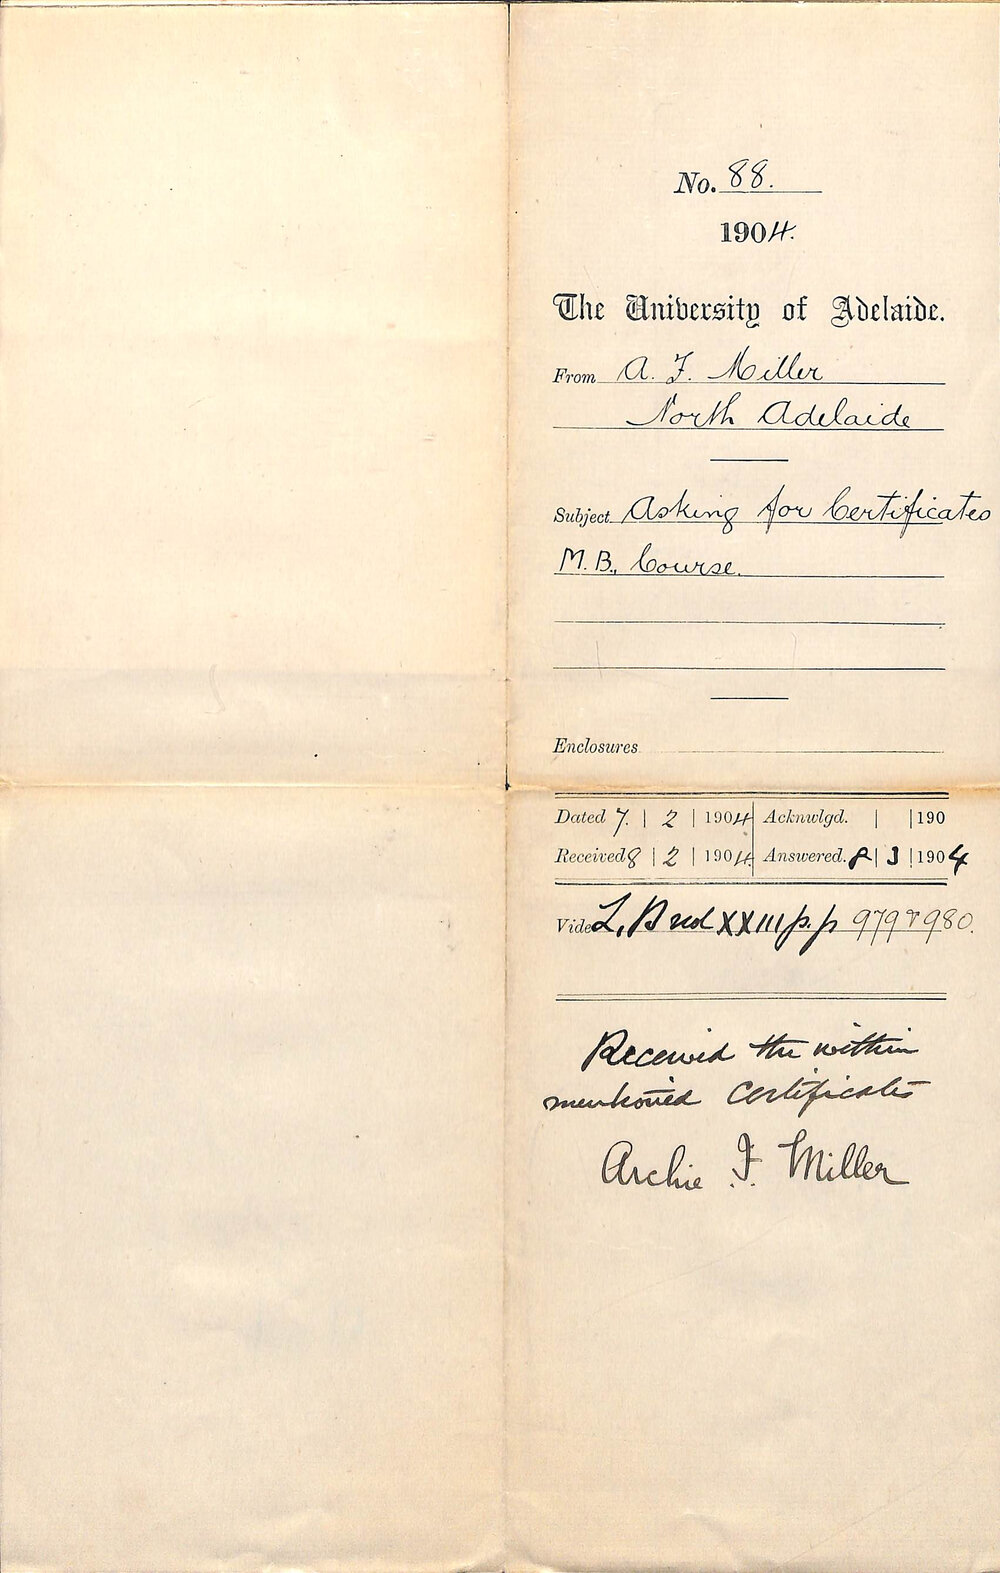 No. 88.
1904.
The University of Adelaide.
From A. F. Miller
North Adelaide
Subject Asking for Certificates
M.B., Course.
Enclosures
Dated 7. | 2 | 1904 | Acknwlgd. | | 190
Received 8 | 2 | 1904. | Answered. 8 | 3 | 1904
Vide L, B red XXIII p. p 979 & 980.
Received the within
mentioned certificates
Archie F. Miller